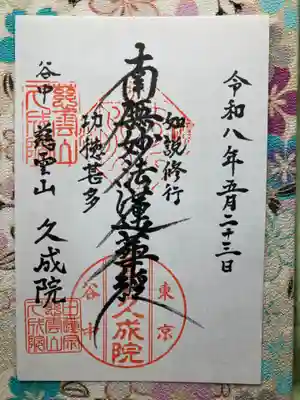 令和八年五月二十三日
如説修行
南無妙法蓮華経
功徳甚多
谷中 慈雲山 久成院
慈雲山
久成院
東京
久成院
谷中